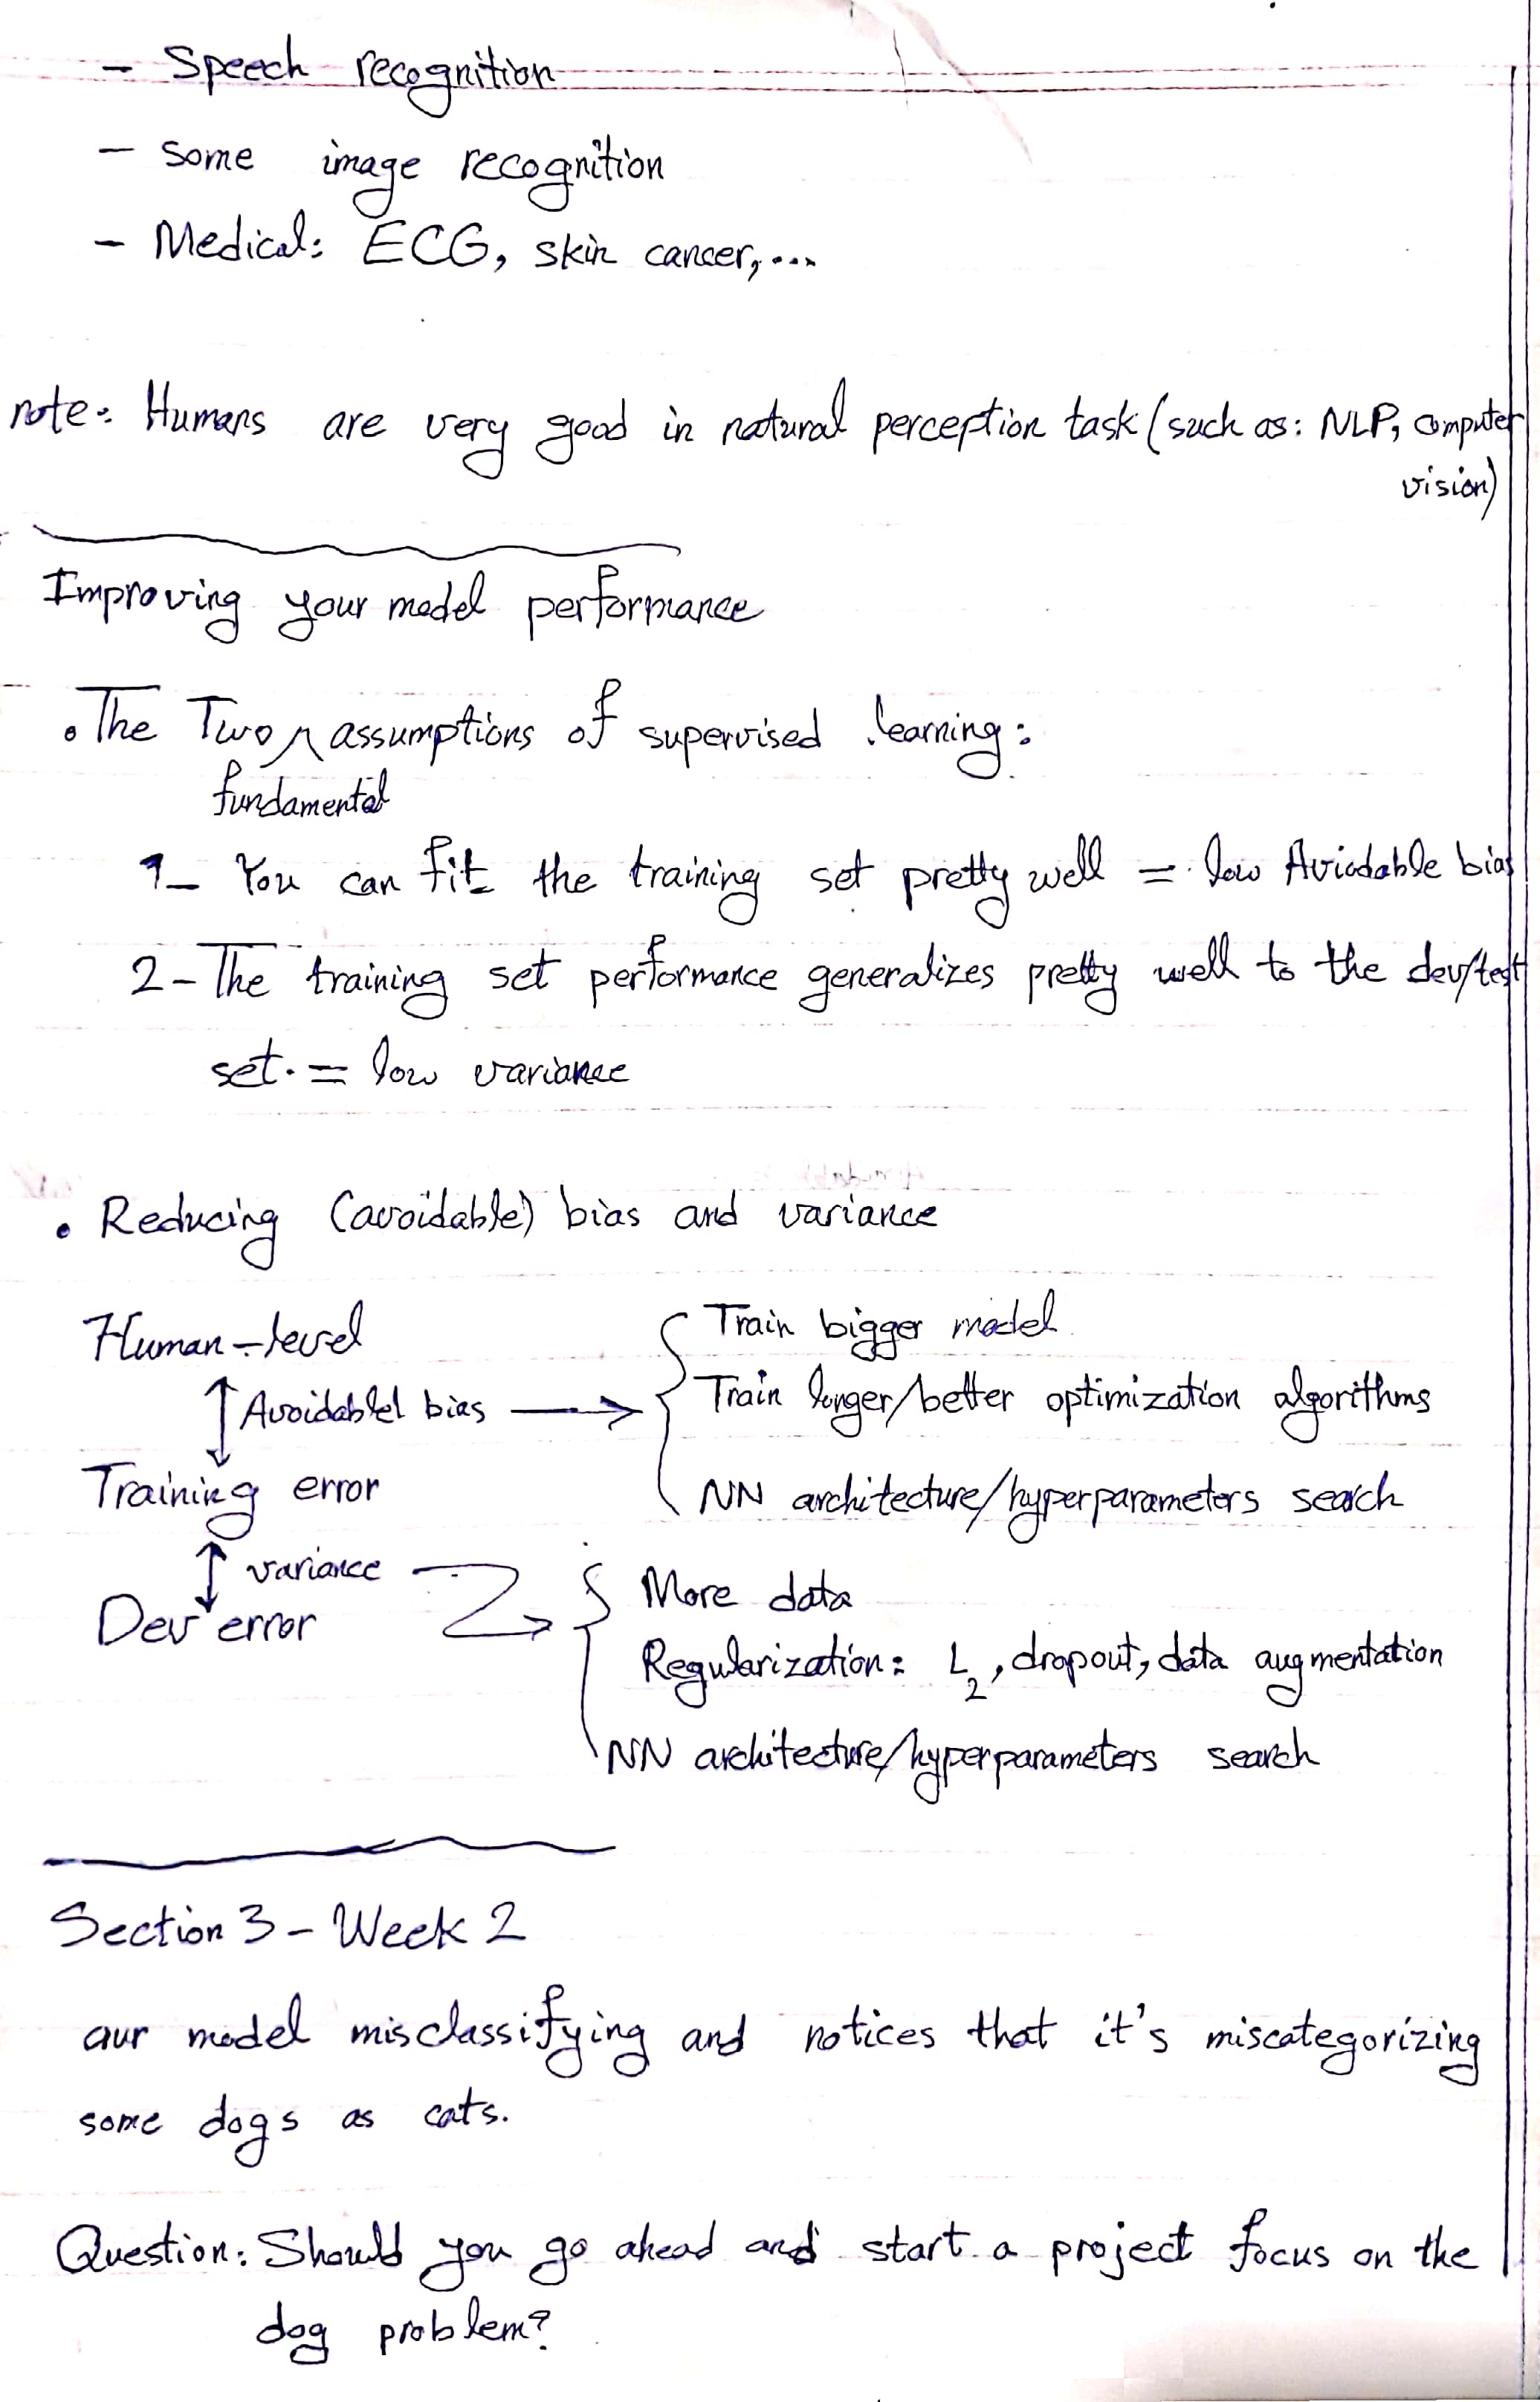 - Speech recognition
- some image recognition
- Medical: ECG, skin cancer, ...
note: Humans are very good in natural perception task (such as: NLP, computer
vision)
Improving your model performance
• The Two assumptions of supervised learning:
fundamental
1- You can fit the training set pretty well = low Aviodable bias
2- The training set performance generalizes pretty well to the dev/test
set. = low variance
• Reducing (avoidable) bias and variance
Human-level
Train bigger model
Avoidablel bias → Train longer/better optimization algorithms
Training error
NN architecture/hyperparameters search
variance
More data
Dev error
Regularization: L2, dropout, data augmentation
NN architecture/hyperparameters search
Section 3 - Week 2
our model misclassifying and notices that it's miscategorizing
some dogs as cats.
Question: Should you go ahead and start a project focus on the
dog problem?